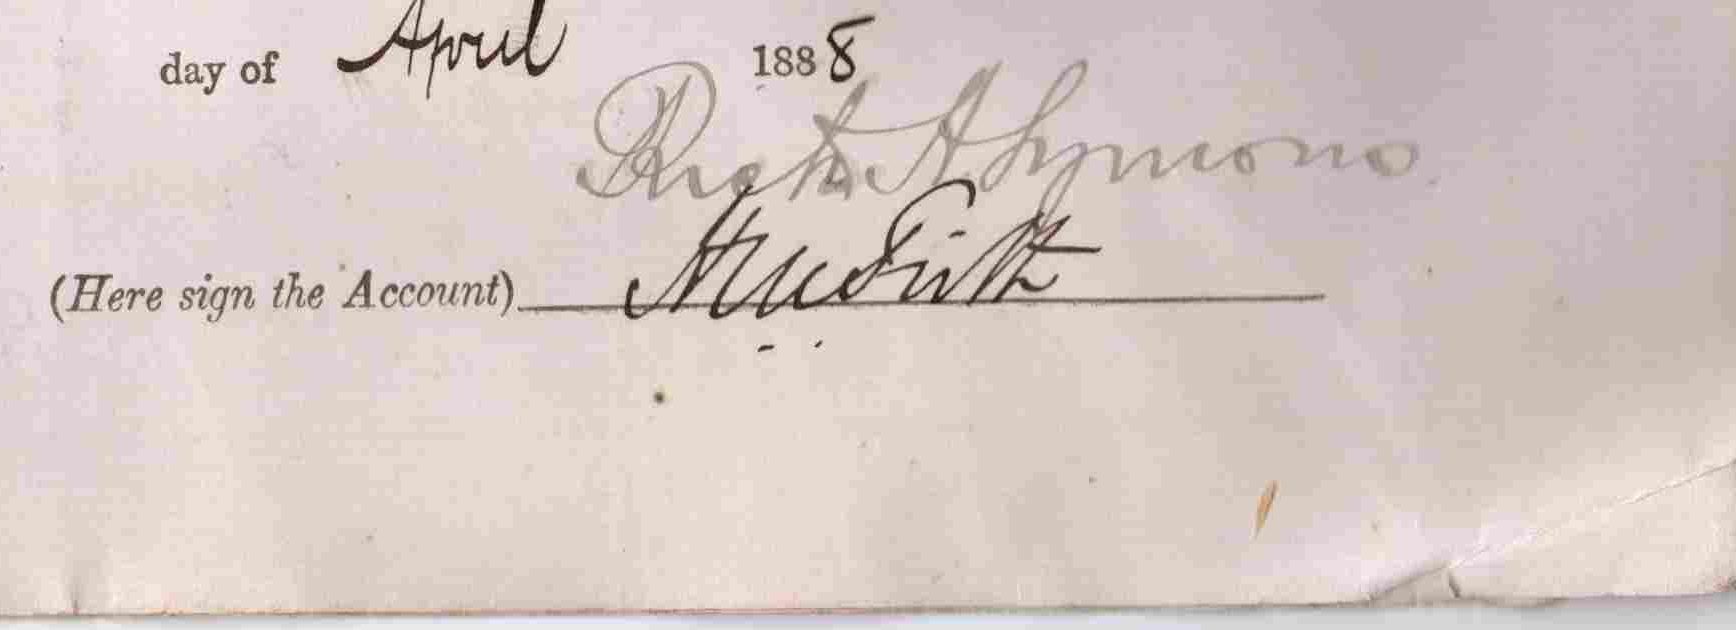 day of April 1888
A Symons
(Here sign the Account)